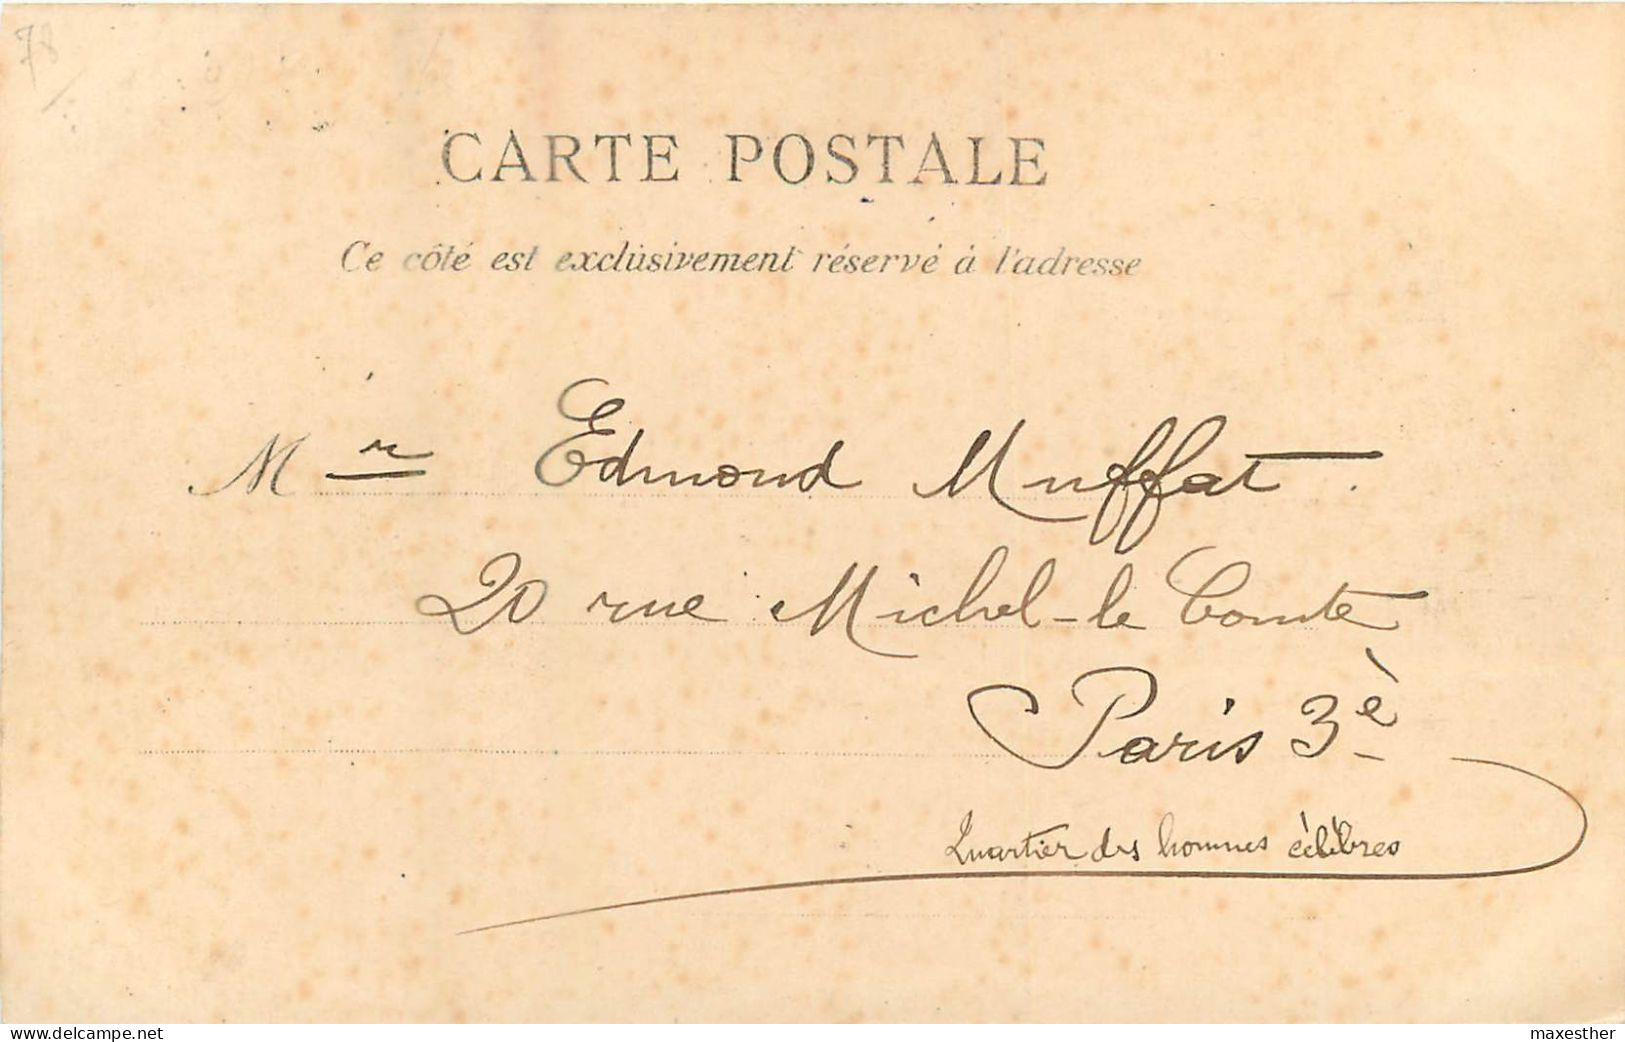 78
CARTE POSTALE
Ce côté est exclusivement réservé à l'adresse
Mr Edmond Muffat.
20 rue Michel-le Comte
Paris 3è
Quartier des hommes célèbres
www.delcampe.net
maxesther